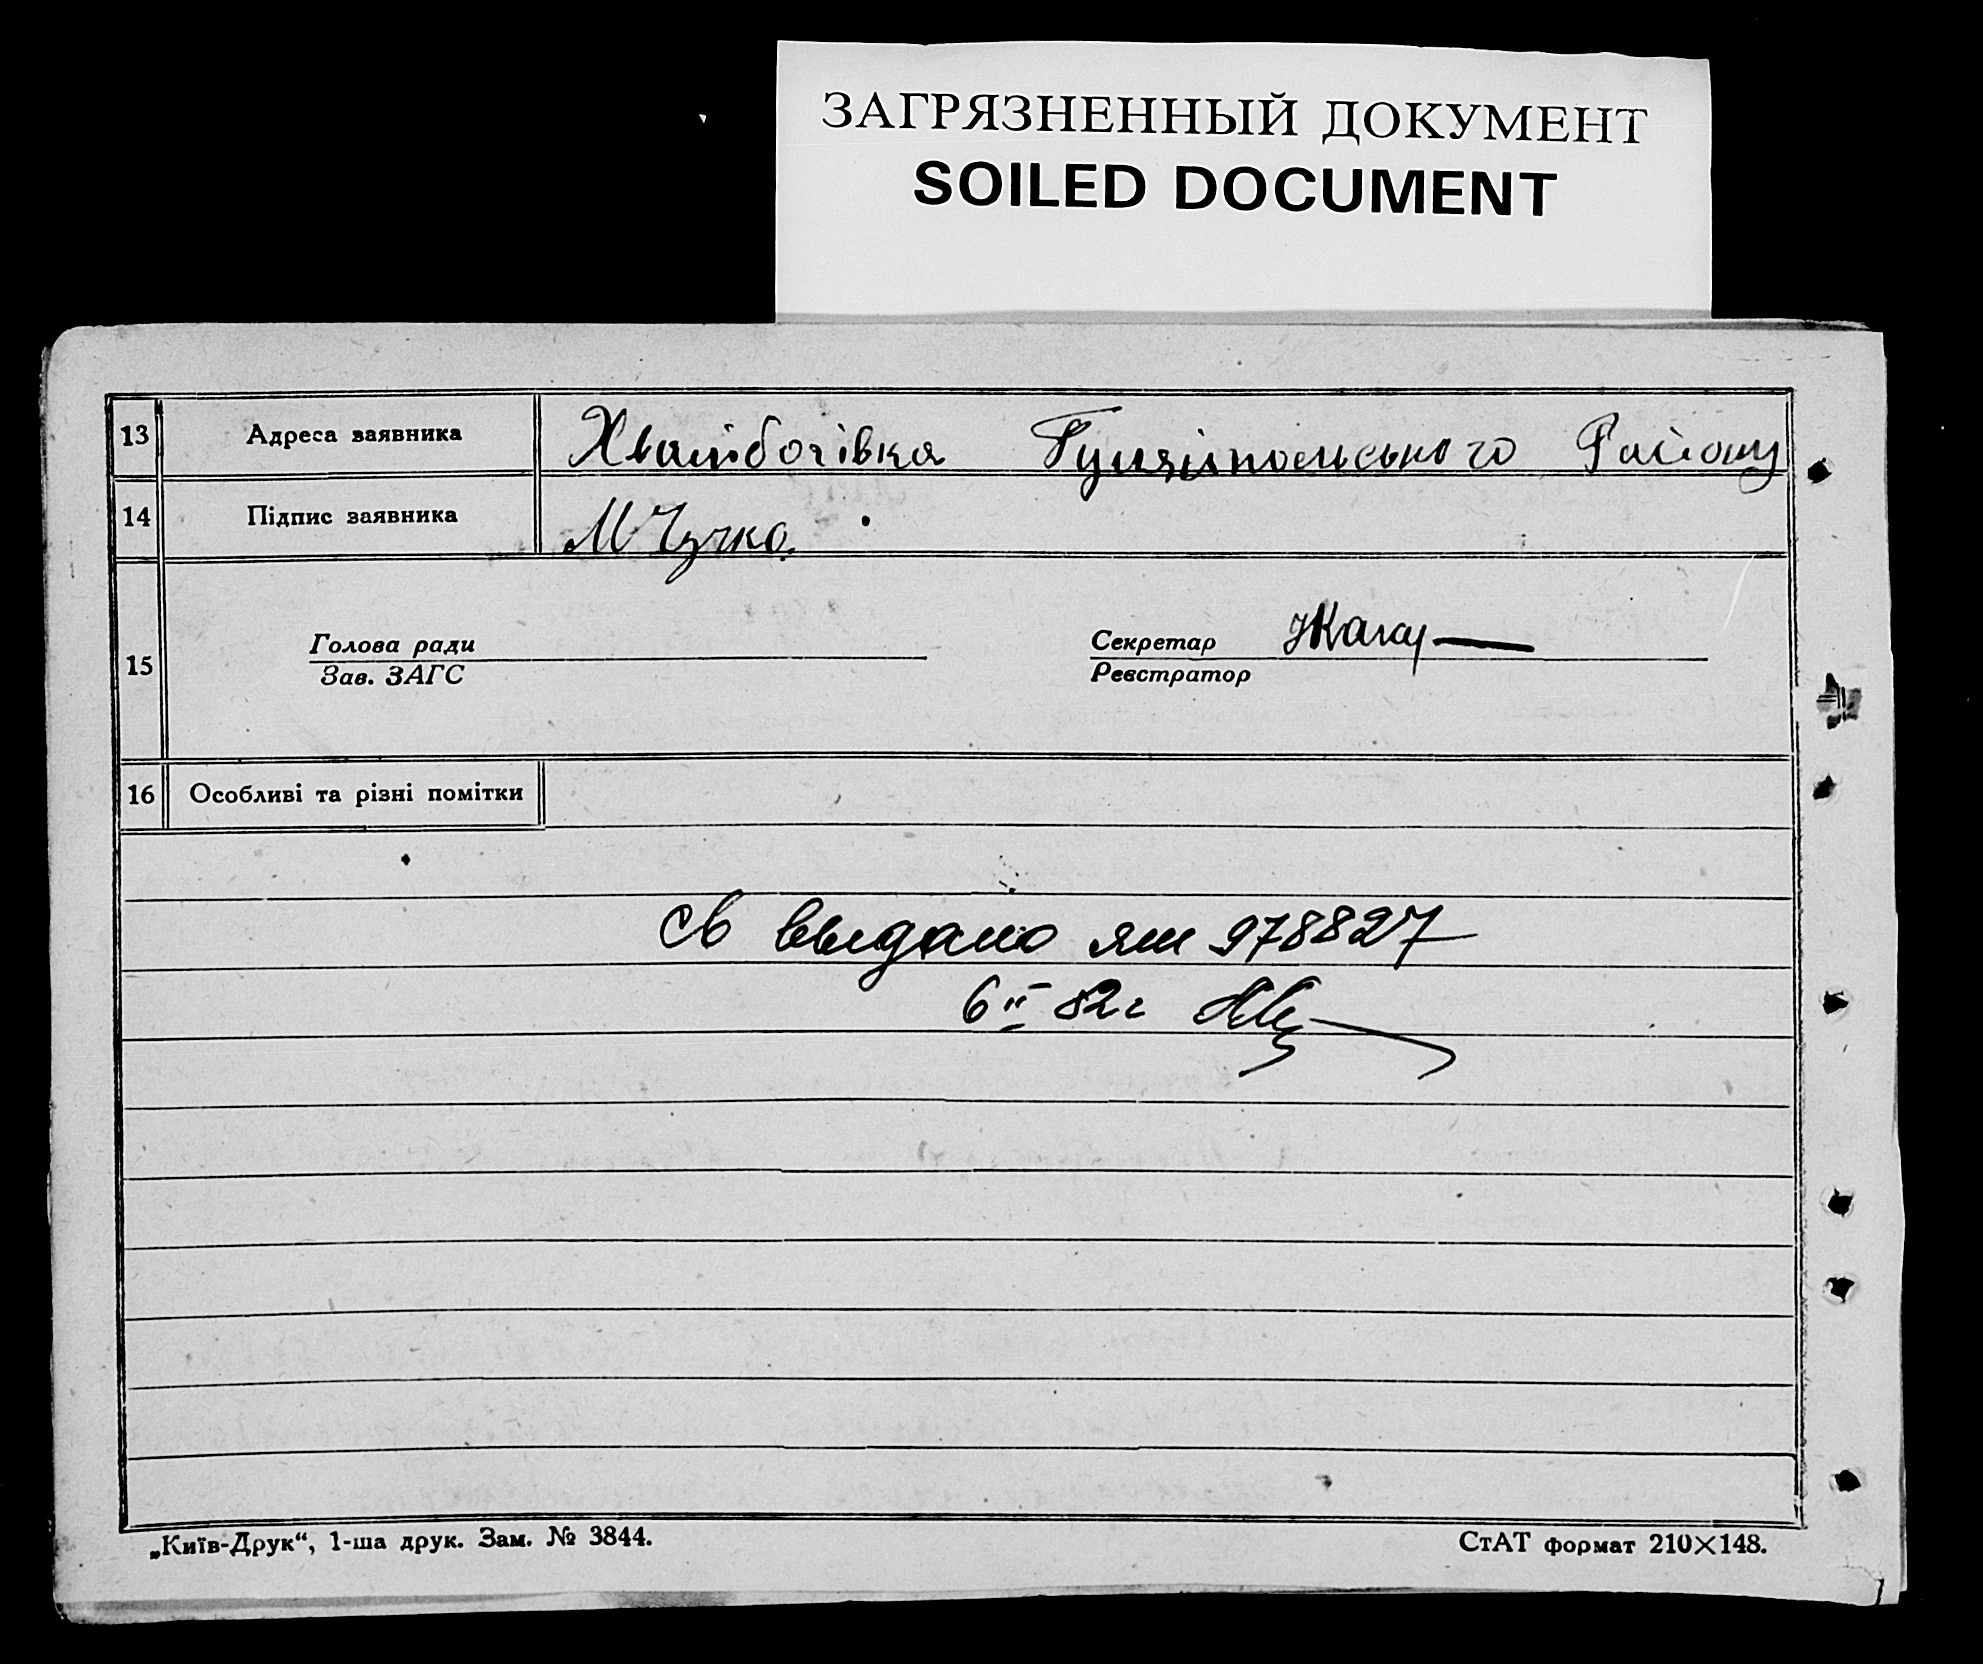 ЗАГРЯЗНЕННЫЙ ДОКУМЕНТ
SOILED DOCUMENT
13 Адреса заявника Хвалібогівка Гуляйпольського Району
14 Підпис заявника М Чучко.
15 Голова ради Секретар
Зав. ЗАГС Реєстратор
16 Особливі та різні помітки
св выдано ЯШ 978827
6 II 82 г
„Київ-Друк“, 1-ша друк. Зам. № 3844. СтАТ формат 210×148.